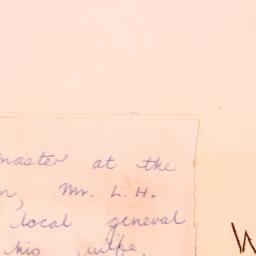 master at the
Mr. L. H.
local general
his wife,
W